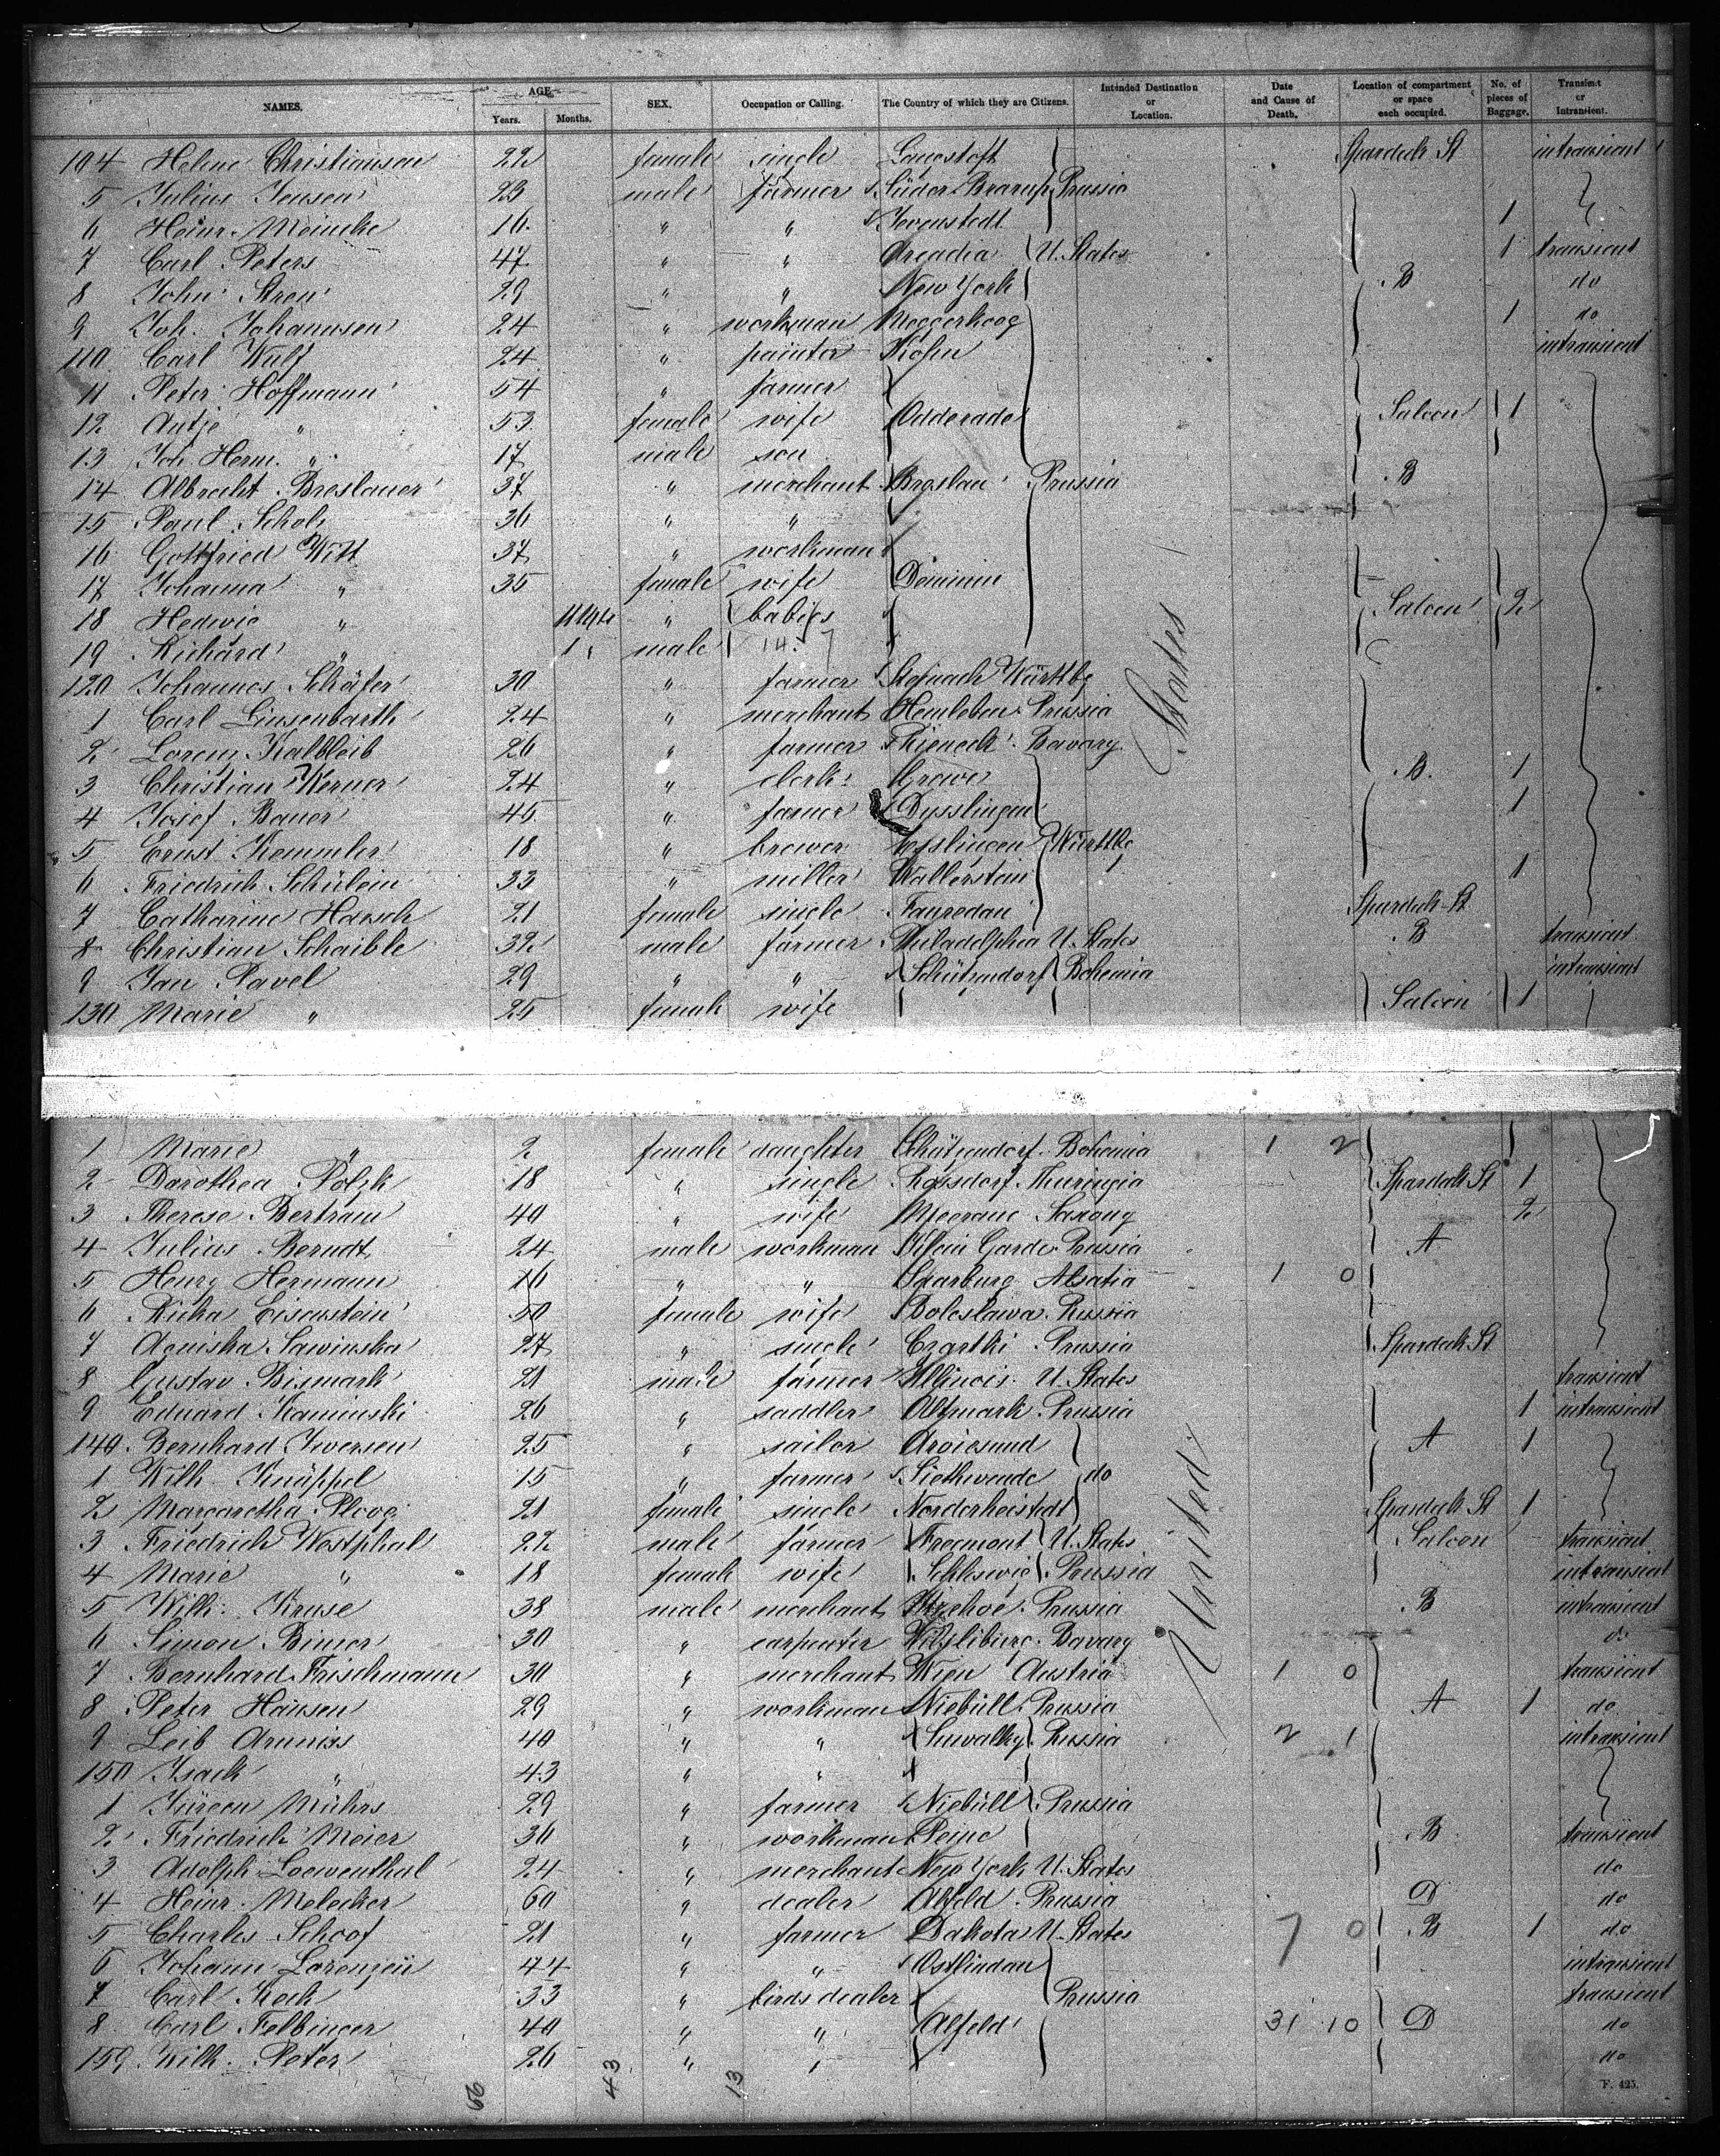 NAMES. AGE Years. Months. SEX. Occupation or Calling. The Country of which they are Citizens. Intended Destination or Location. Date and Cause of Death. Location of compartment or space each occupied. No. of pieces of Baggage. Transient or Intransient.
104 Helene Christiansen 22 female single Spardeck St intransient
5 Julius Jensen 23 male farmer Süder Brarup Prussia
6 Heinr. Meincke 16 " " Jevenstedt 1
7 Carl Peters 47 " " Arcadia U. States 1 transient
8 John Stren 29 " " New York B do
9 Joh. Johannsen 24 " workman 1 do
110 Carl Wulf 24 " painter intransient
11 Peter Hoffmann 54 " farmer
12 Antje " 53 female wife Odderade Saloon 1
13 Joh. Herm. " 17 male son
14 Albrecht Breslauer 37 " merchant Breslau Prussia B
15 Paul Scholz 36 " "
16 Gottfried Witt 37 " workman
17 Johanna " 35 female wife
18 Hedwig " " babies Saloon 2
19 Richard " male
120 Johannes Schäfer 30 " farmer Württbg
1 Carl Linsenbarth 24 " merchant Hemleben Prussia
2 Lorenz Kalbleib 26 " farmer Rieneck Bavary
3 Christian Werner 24 " clerk B. 1
4 Josef Bauer 45 " farmer Dusslingen 1
5 Ernst Kemmler 18 " brewer Esslingen Württbg
6 Friedrich Schülein 33 " miller Wallerstein 1
7 Catharine Harsch 21 female single Spardeck St
8 Christian Schaible 32 male farmer Philadelphia U. States B transient
9 Jan Pavel 29 " " Schützendorf Bohemia intransient
130 Marie " 25 female wife Saloon 1
1 Marie " 2 female daughter Schützendorf Bohemia 1 2
2 Dorothea 18 " single Rossdorf Thuringia Spardeck St 1
3 Therese Bertram 40 " wife Meerane Saxony 2
4 Julius Berndt 24 male workman Klein Garde Prussia A
5 Henry Hermann 16 " " Saarburg Alsatia 1 0
6 Richa Eisenstein 50 female wife Boleslawa Russia
7 Agniska Sawinska 27 " single Prussia Spardeck St
8 Gustav Bismark 21 male farmer Illinois U. States transient
9 Eduard Kaminski 26 " saddler Altmark Prussia 1 intransient
140 Bernhard Iwersen 25 " sailor Aroiesund A 1
1 Wilh. Knüppel 15 " farmer Siethwende do
2 Margaretha Ploog 21 female single Norderheistedt Spardeck St 1
3 Friedrich Westphal 22 male farmer Freemont U. States Saloon transient
4 Marie " 18 female wife Schleswig Prussia intransient
5 Wilh. Kruse 38 male merchant Itzehoe Prussia B intransient
6 Simon Bimer 30 " carpenter Vilsbiburg Bavary do
7 Bernhard Frischmann 30 " merchant Wien Austria 1 0 transient
8 Peter Hansen 29 " workman Niebüll Prussia A 1 do
9 Leib 40 " " Suwalky Russia 2 1 intransient
150 Isack " 43 " "
1 Jürgen Mührs 29 " farmer Niebüll Prussia
2 Friedrich Meier 36 " workman Peine B transient
3 Adolph Loewenthal 24 " merchant New York U. States do
4 Heinr. Melecher 60 " dealer Alfeld Prussia D do
5 Charles Schoof 21 " farmer Dakota U. States 7 0 B 1 do
6 Johann Lorenzen 44 " " Ostlindau intransient
7 Carl Koch 33 " birds dealer Prussia transient
8 Carl Felbinger 40 " " Alfeld 31 10 D do
159 Wilh. Peter 26 " " do
United States
56 43 13
F. 425.